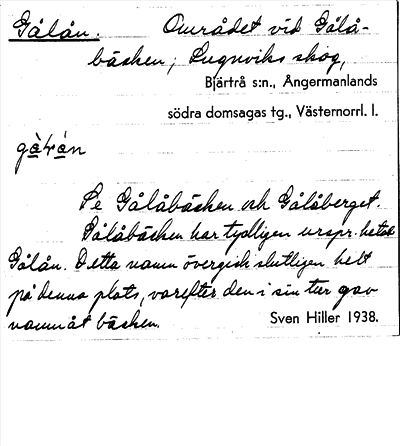 Gålån. Området vid Gålå-
bäcken, Lugnviks skog,
Bjärtrå s:n., Ångermanlands
södra domsagas tg., Västernorrl. l.
Se Gålåbäcken och Gålåberget.
Gålåbäcken har tydligen urspr. hetat
Gålån. Detta namn övergick slutligen helt
på denna plats, varefter den i sin tur gav
namn åt bäcken. Sven Hiller 1938.